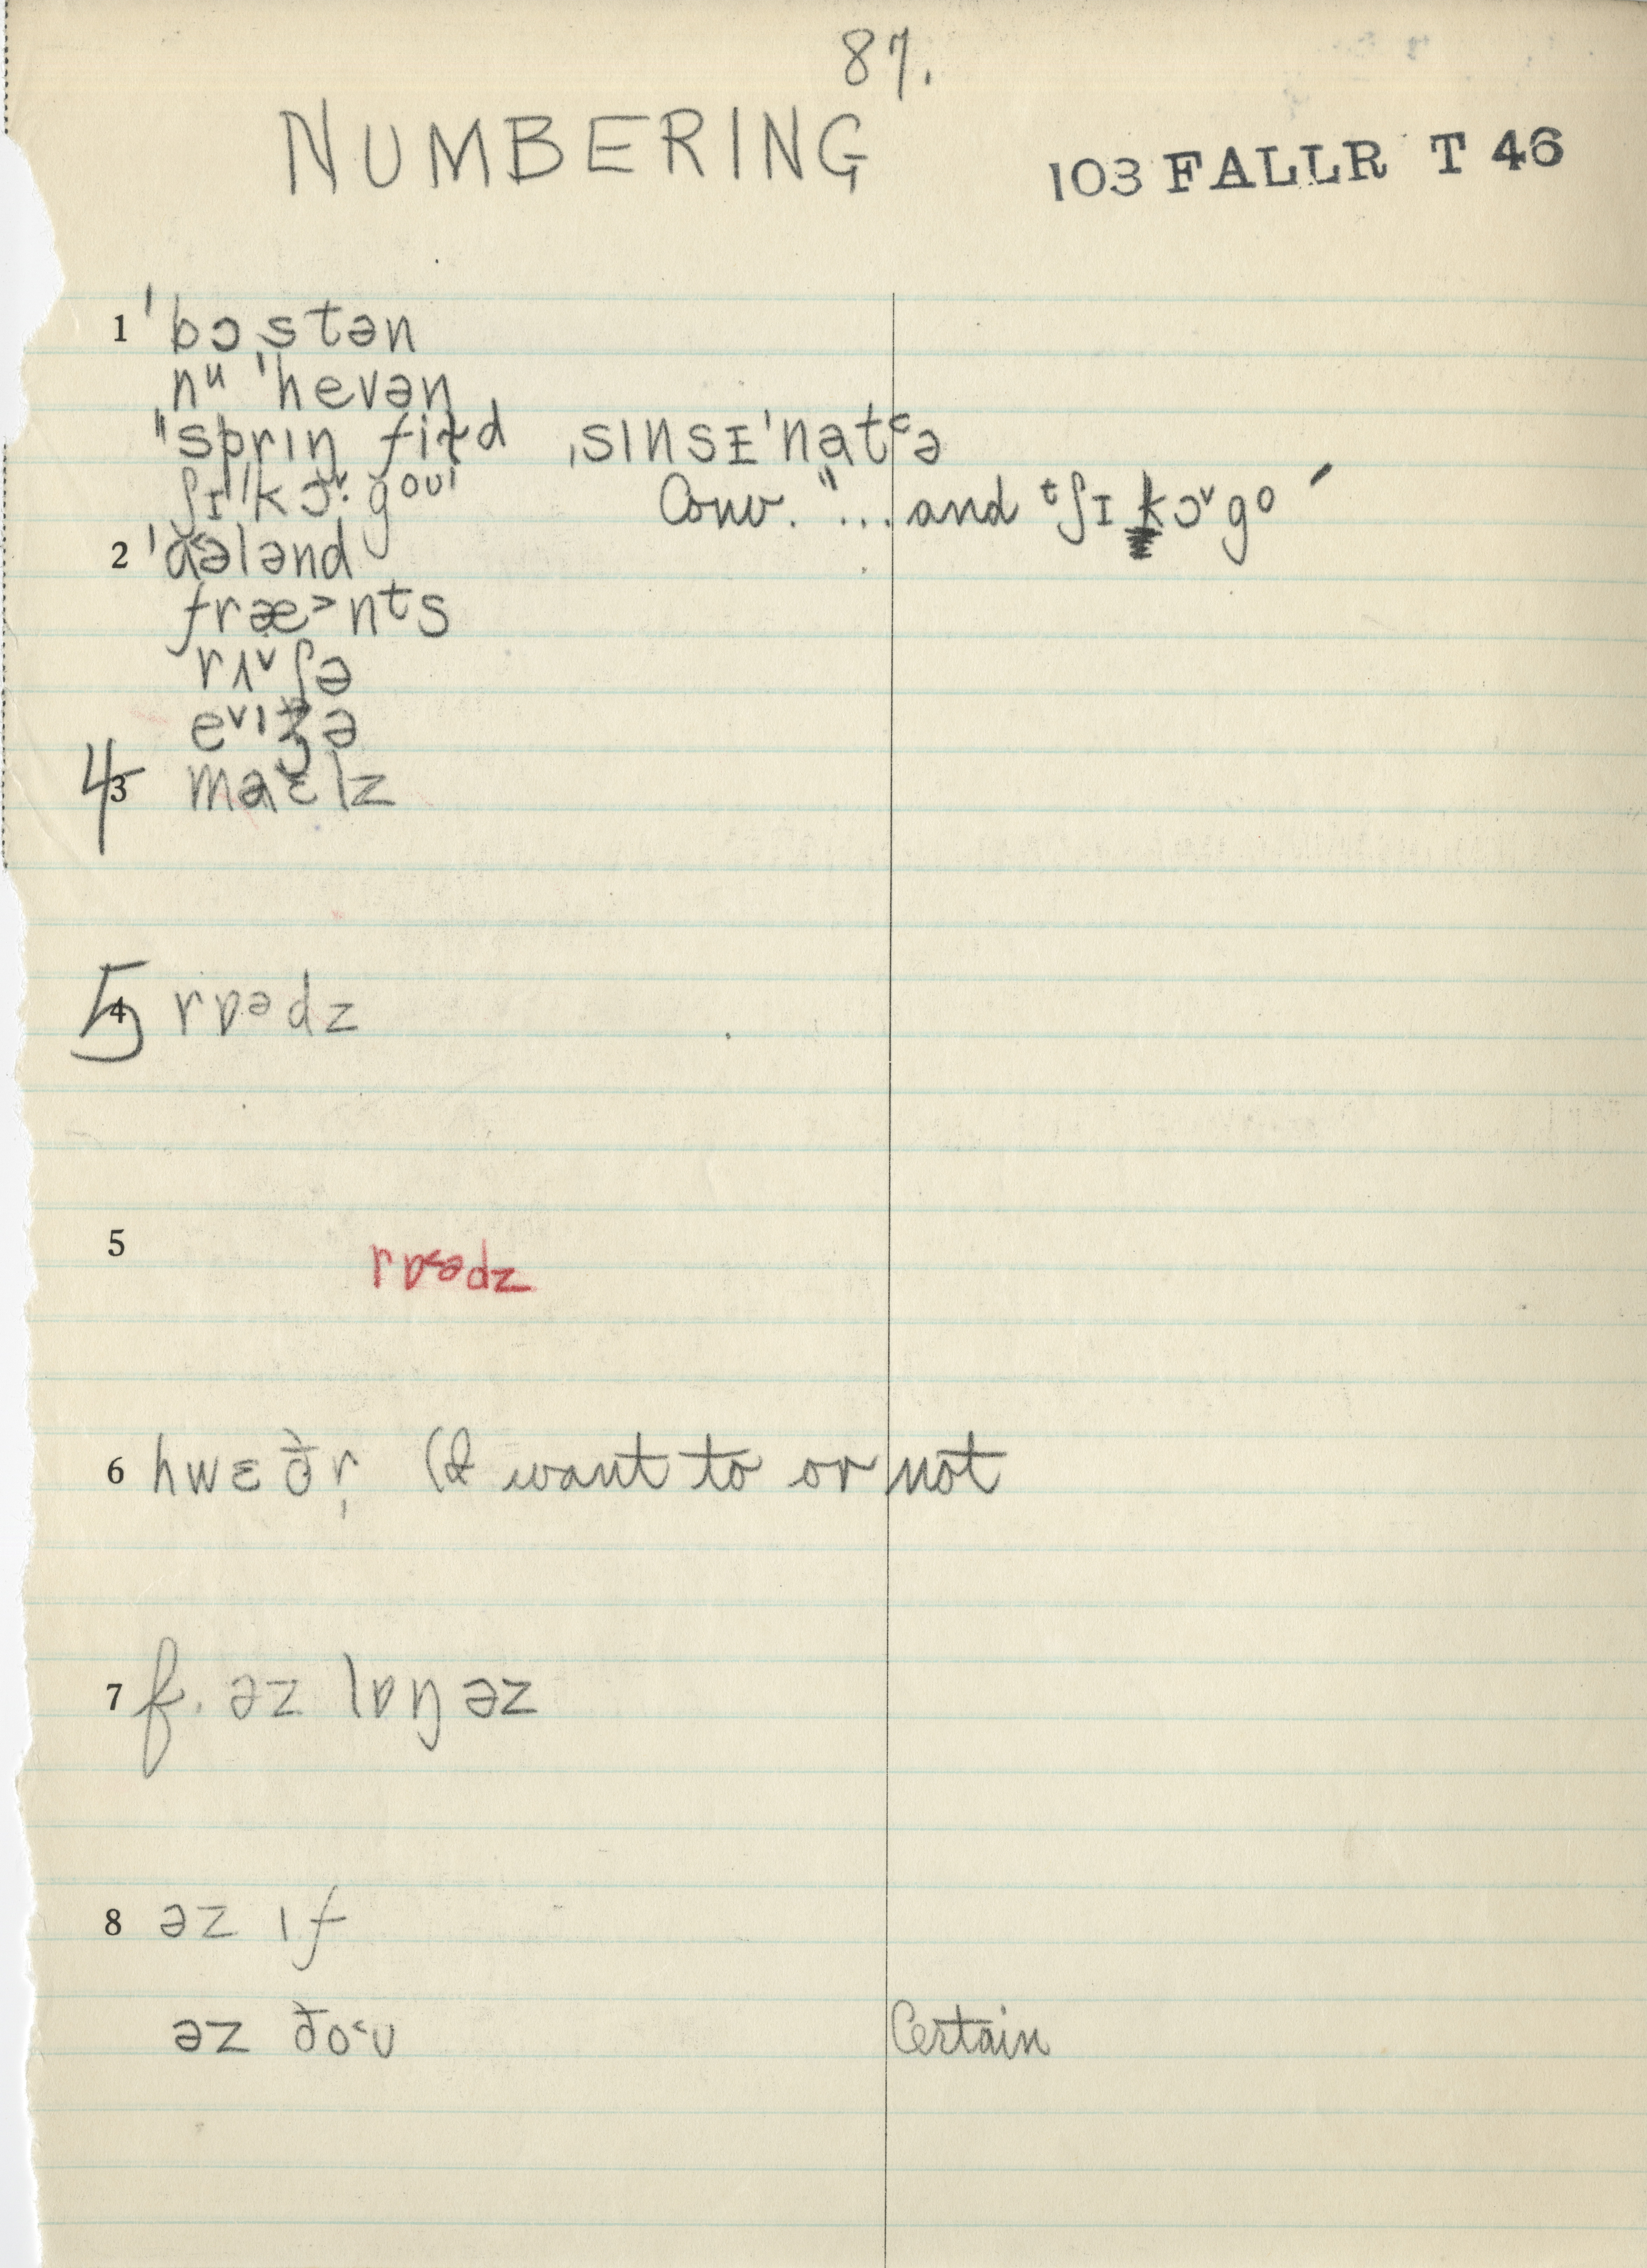 87.
NUMBERING
103 FALLR T 46
1 ˈbɔstən
nᵘ ˈhevən
"sprɪŋ fiɫd ˌsɪnsᴇˈnatᶜə
ʃɪ"kɔ˅·goᴜ Conv. "... and ᵗʃɪ kɔ˅go
2 ˈɑ˂ələnd
fræ˃nᵗs
rʌ˅ʃə
e˅ɪʒə
4 3 maɛlz
5 4 rɒᵊdz
5
rɒ˂ədz
6 hwɛðr̩ (I want to or not
7 f. əz lɒŋ əz
8 əz ɪf
əz ðo˂ᴜ Certain